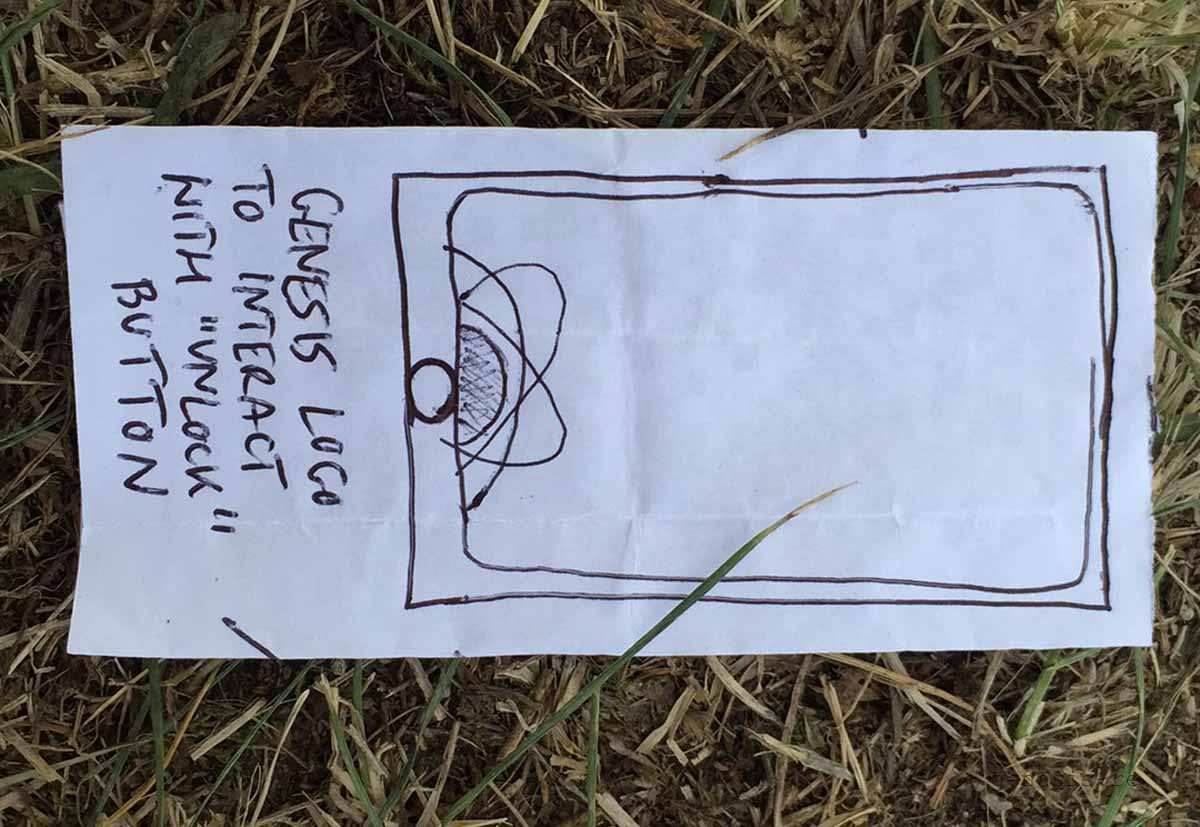 GENESIS LOGO
TO INTERACT
WITH "UNLOCK"
BUTTON